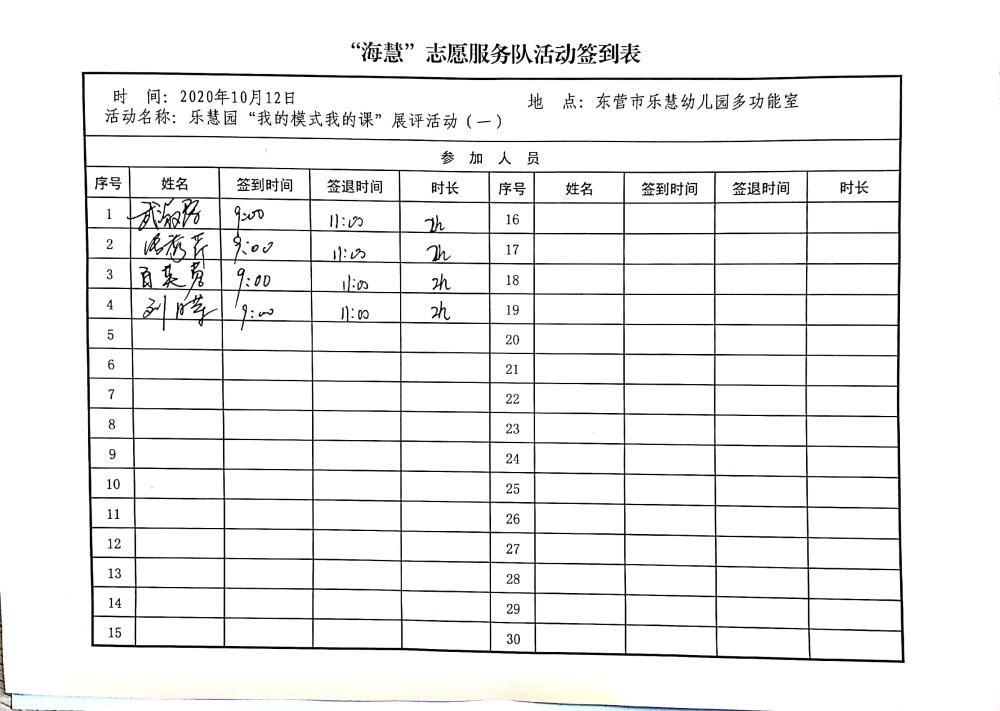 “海慧”志愿服务队活动签到表
时 间：2020年10月12日 地 点：东营市乐慧幼儿园多功能室
活动名称：乐慧园“我的模式我的课”展评活动（一）
参 加 人 员
序号 姓名 签到时间 签退时间 时长 序号 姓名 签到时间 签退时间 时长
1 9:00 11:00 2h 16
2 9:00 11:00 2h 17
3 9:00 11:00 2h 18
4 9:00 11:00 2h 19
5 20
6 21
7 22
8 23
9 24
10 25
11 26
12 27
13 28
14 29
15 30